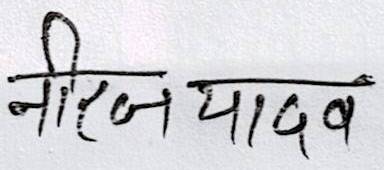 नीरज यादव